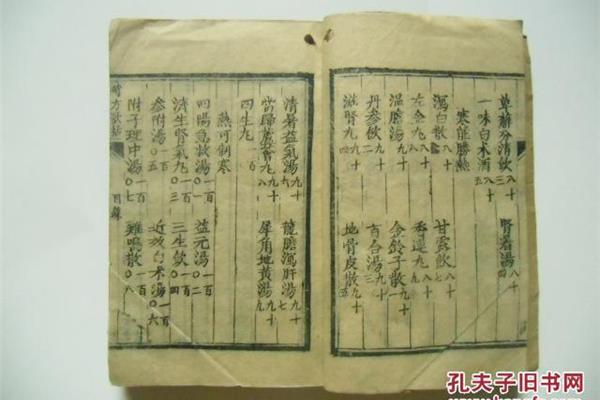 萆薢分清飲八十三 腎着湯八十四
一味白术酒八十五
寒能勝熱
瀉白散八十六 甘露飲八十七
左金丸八十八 香連丸八十九
溫膽湯九十 金鈴子散九十一
丹參飲九十二 百合湯九十三
滋腎丸九十四 地骨皮散九十五
清暑益氣湯九十六 龍膽瀉肝湯九十七
當歸蘆薈丸九十八 犀角地黃湯九十九
四生丸一百
熱可制寒
回陽急救湯一百〇一 益元湯一百〇二
濟生腎氣丸一百〇三 三生飲一百〇四
參附湯一百〇五 近效白术湯一百〇六
附子理中湯一百〇七 雞鳴散一百〇八
時方歌括 目錄
孔夫子旧书网